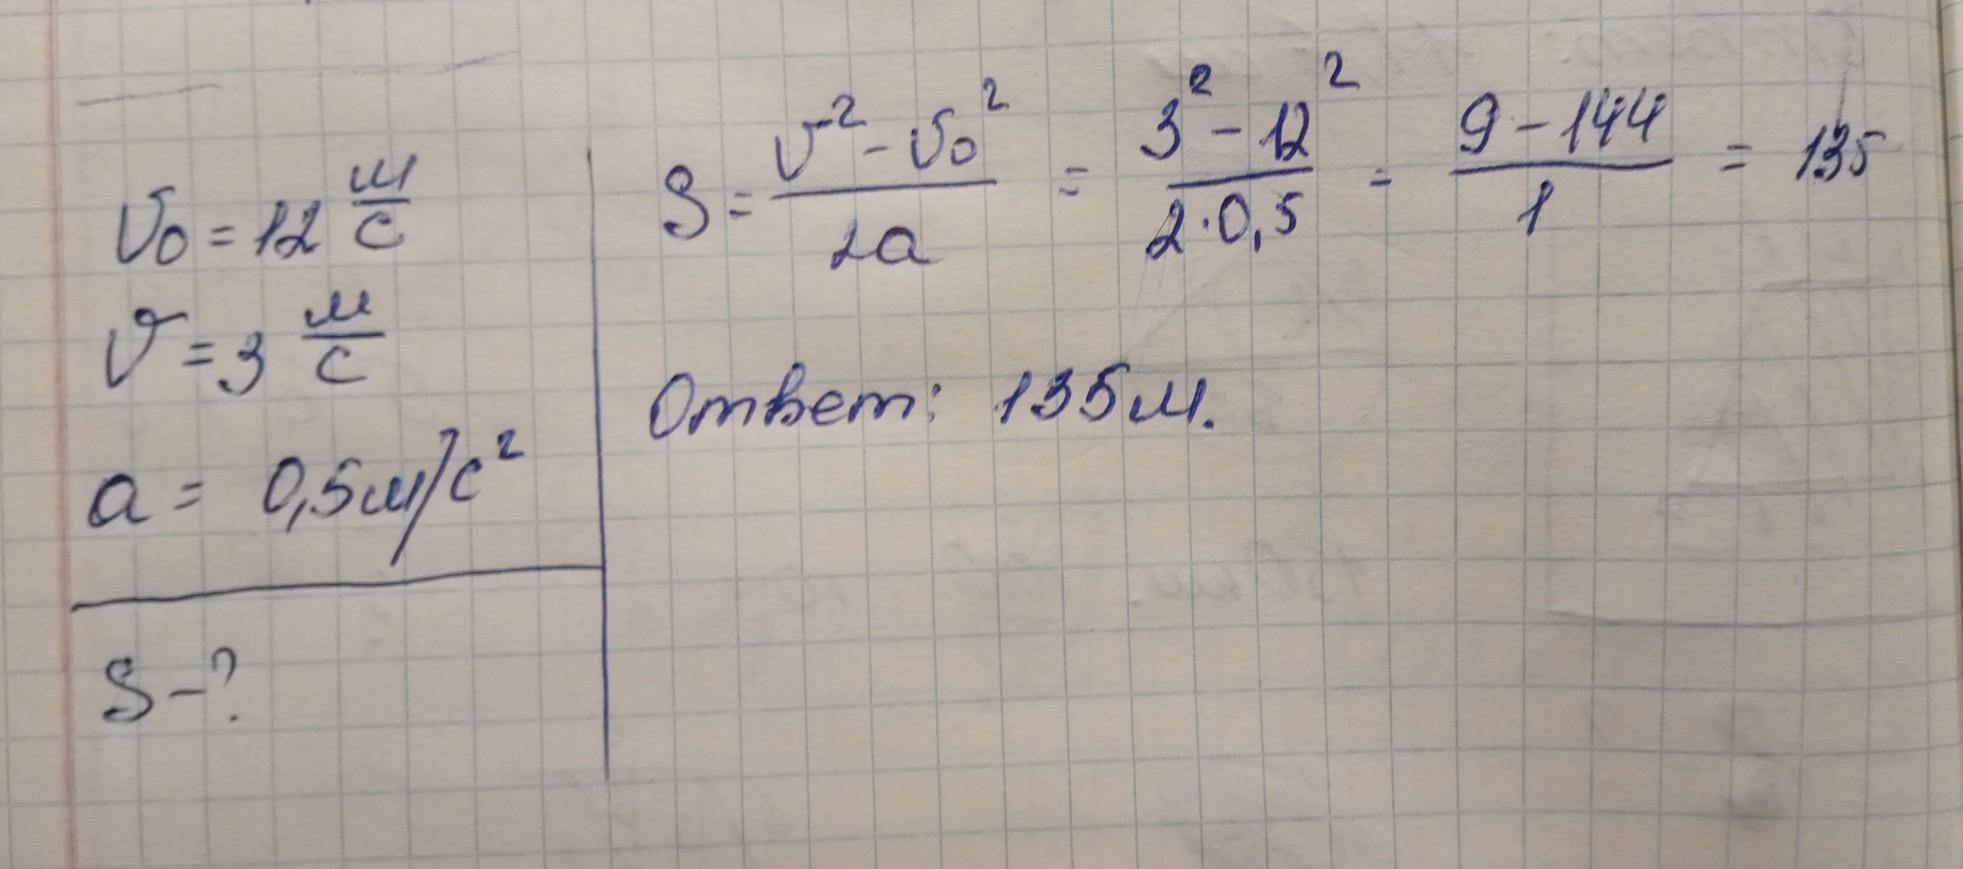 v₀ = 12 м/с
v = 3 м/с
a = 0,5м/с²
S - ?
S = (v² - v₀²)/(2a) = (3² - 12²)/(2·0,5) = (9 - 144)/1 = 135
Ответ: 135м.